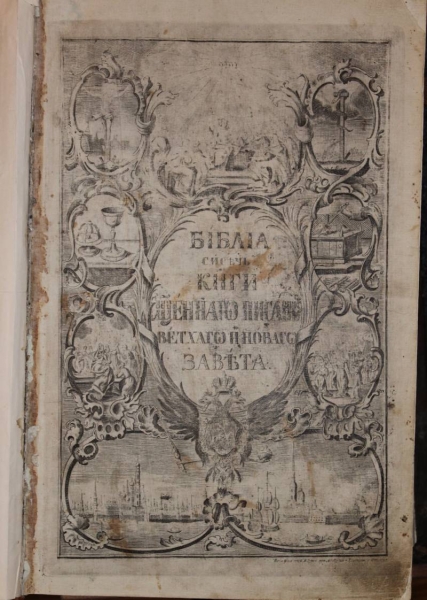 БІБЛІА
сирѣчь
КНИГИ
СЩ҃ЕННАГѠ ПИСАНІѦ
ВЕТХАГѠ И҆ НОВАГѠ
ЗАВѢТА.